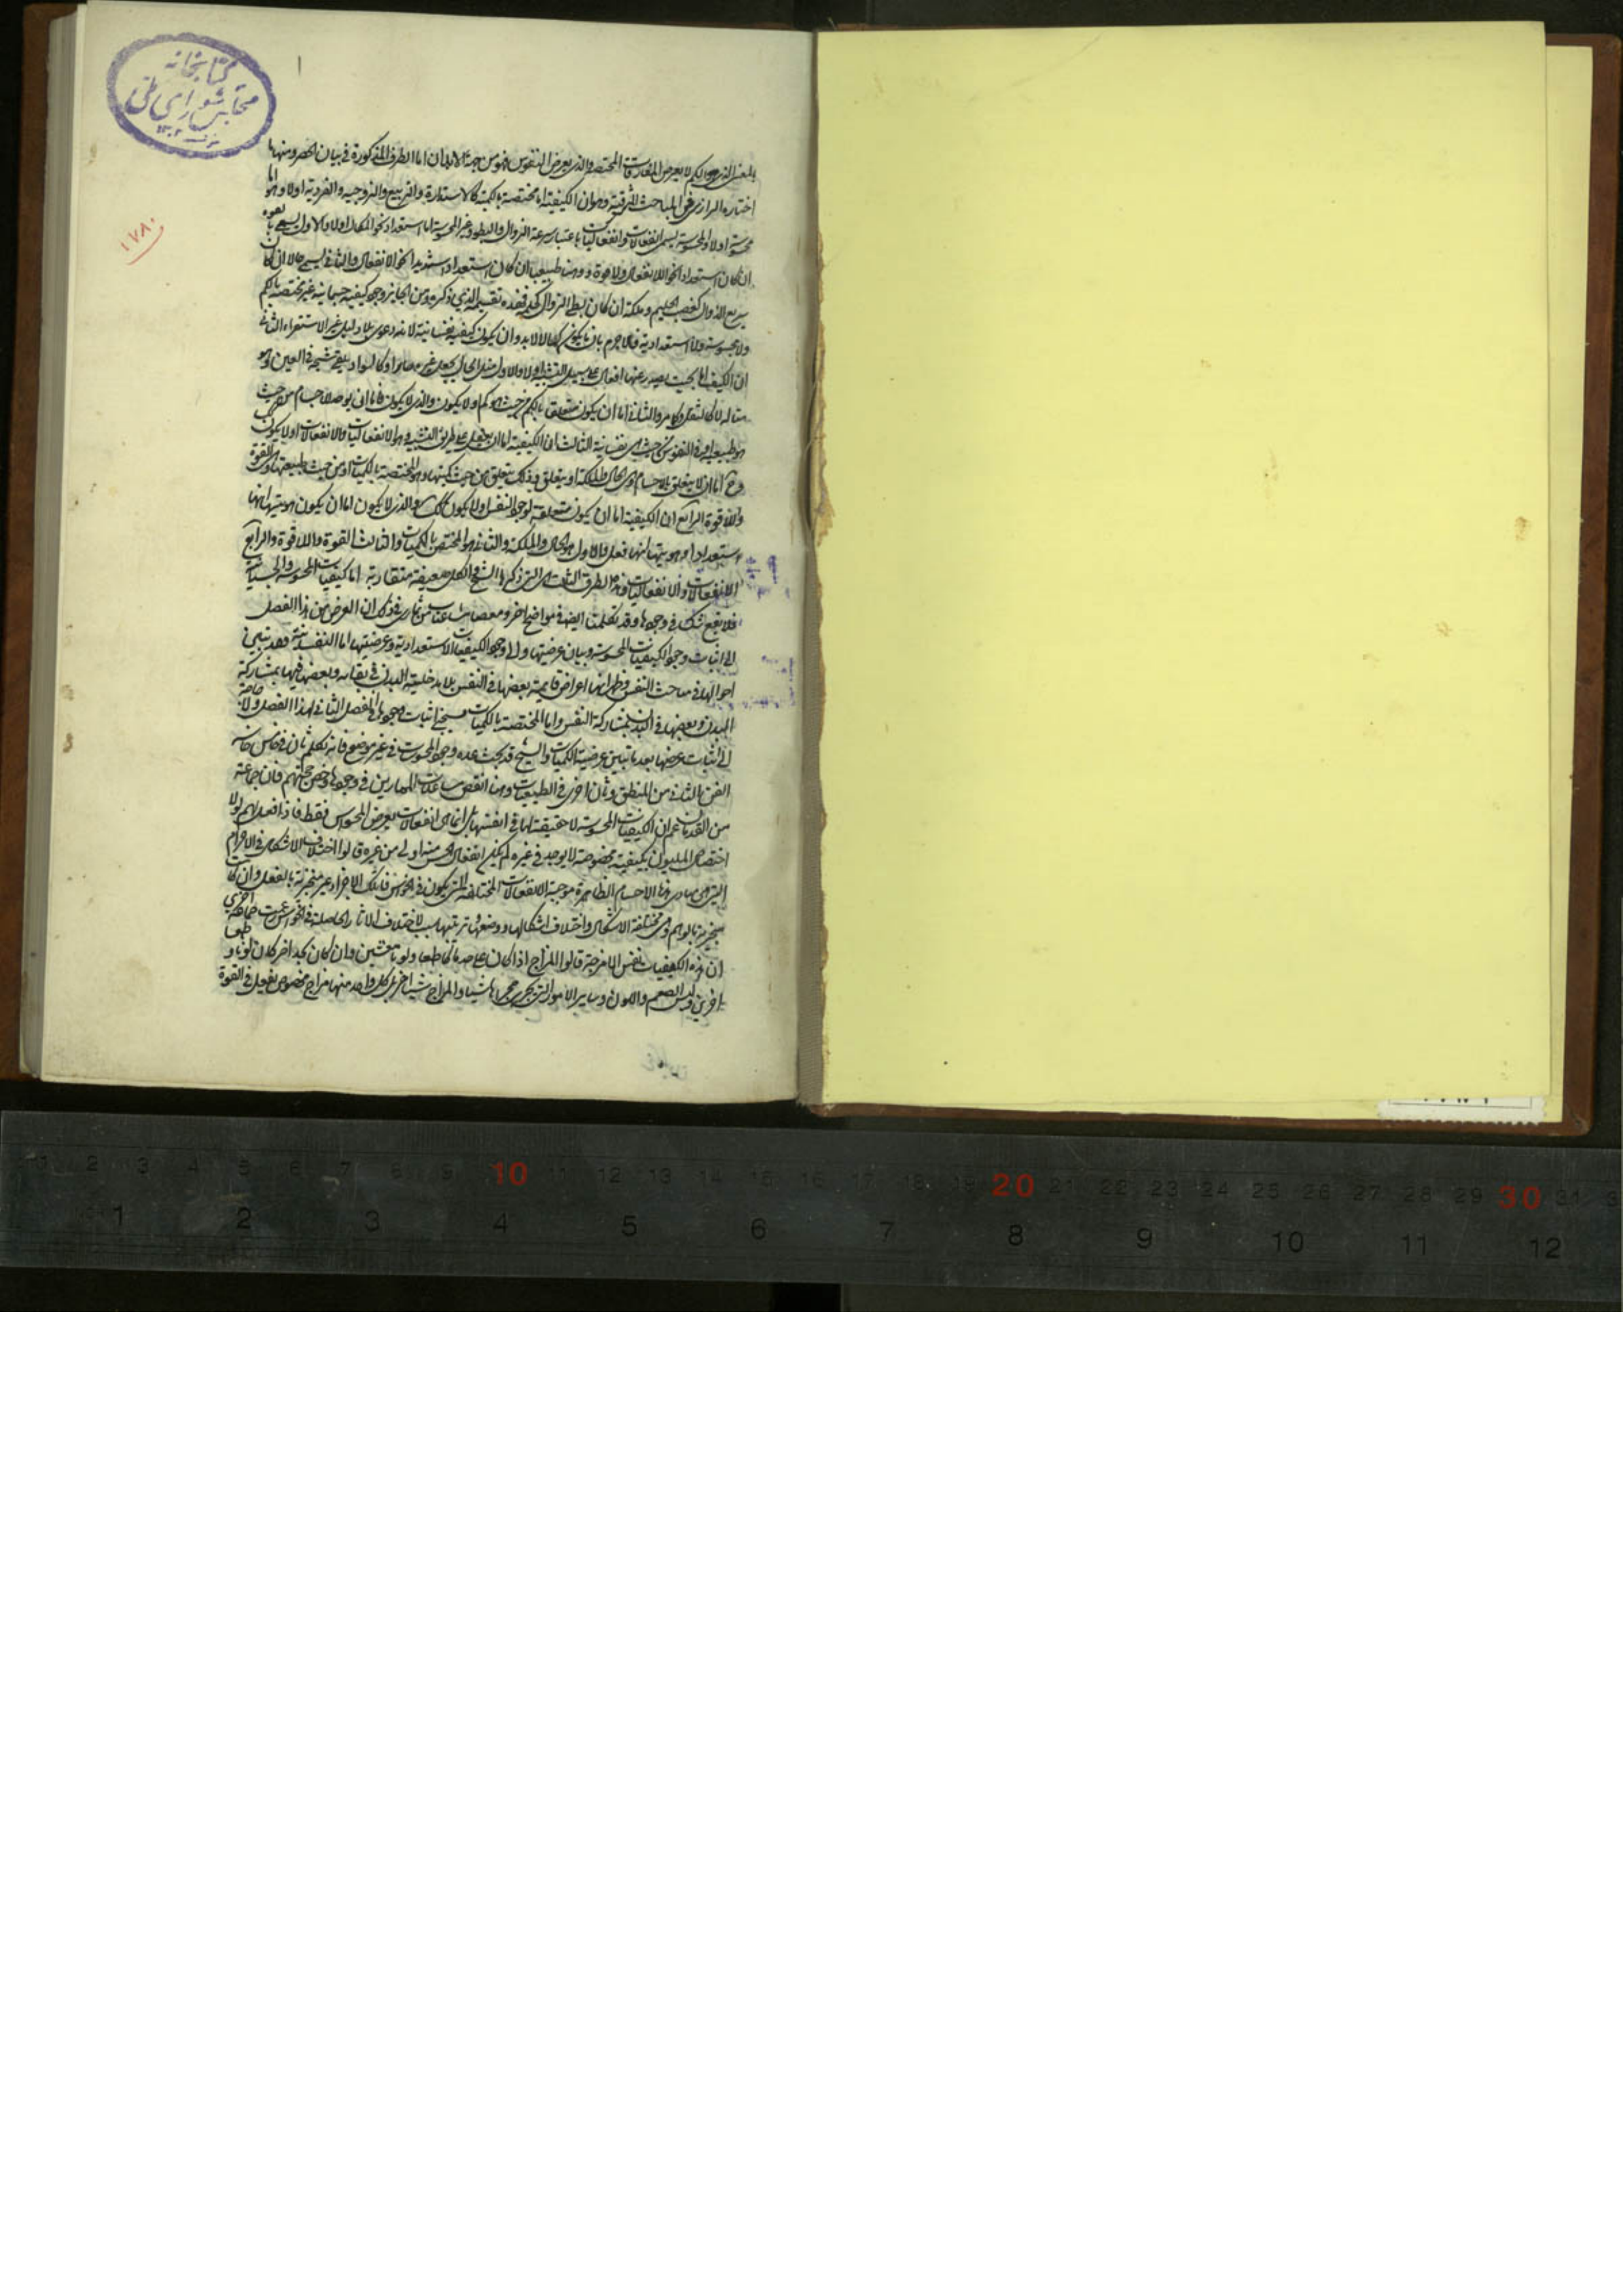 كتابخانه
مجلس شورای ملی
١٧٨٠
بالمعنى الذى هو الكم لا يعرض المفارقات المختصة والذى يعرض النفوس فهو من جهة الابدان اما الطرق المذكورة فى بيان الحصر ومنها ما
اختاره الرازى فى المباحث المشرقية وهو ان الكيفية اما مختصة بالكمية كالاستدارة والتربيع والزوجية والفردية اولا وهو اما
محسوسة اولا والمحسوسة يسمى انفعالات وانفعاليات باعتبار سرعة الزوال والبطؤ وغير المحسوسة اما استعداد نحو الكمال اولا والاول يسمى بالقوة
ان كان استعدادا نحو اللاانفعال ولا قوة ووهنا طبيعيا ان كان استعدادا شديدا نحو الانفعال والثانى يسمى حالا ان كان
سريع الزوال كغضب الحليم وملكة ان كان بطئ الزوال كحلمه فهذه تقسيمه الذى ذكره ومن الجايز وجود كيفية جسمانية غير مختصة بالكم
ولا محسوسة ولا استعدادية فلا جرم بان ما يكون كمالا لابد وان يكون كيفية نفسانية لانه دعوى بلا دليل غير الاستقراء الثانى
ان الكيف اما بحيث يصدر عنها افعال على سبيل التشبيه اولا والاول مثل الحار يجعل غيره حارا وكالسواد يلقى شبحه فى العين وهو
مثاله لا كالثقل والثانى اما ان يكون متعلق بالكم من حيث هو كم اولا يكون والذى لا يكون فاما ان يوصلا جسام من حيث
هو طبيعيا وفى النفوس من حيث هى نفسانية الثالث ان الكيفية اما ان يفعل على طريق التشبيه وهو الانفعاليات والانفعالات اولا يكون
وح اما ان لا يتعلق بالاجسام وهى الحال والملكة او يتعلق وذلك يتعلق من حيث كميتها وهو المختصة بالكميات او من حيث طبيعتها وهو القوة
واللا قوة الرابع ان الكيفية اما ان يكون متعلقة لوجود النفس اولا يكون كك والذى لا يكون اما ان يكون هويتها انها
استعداد او هويتها انها فعل والاول هو الحال والملكة والثانى هو المختص بالكميات والثالث القوة واللا قوة والرابع
الانفعالات والانفعاليات وهذه الطرق الثلث هى التى ذكرها الشيخ والكل ضعيفة متقاربة اما كيفيات المحسوسة والجسمانيات
فلا يقع شك فى وجودها وقد تكلمنا ايضا فى مواضع اخر
الى اثبات وجود الكيفيات المحسوسة وبيان عرضيتها والى وجود الكيفيات الاستعدادية وعرضيتها اما النفسانية فقد تبين
احوالها فى مباحث النفس وظهر انها اعراض قايمة بعضها فى النفس بلا مدخلية البدن فى بقائه وبعضها فيها بمشاركة
البدن وبعضها فى البدن بمشاركة النفس واما المختصة بالكميات فسيجئ اثبات وجودها فى الفصل الثانى لهذا الفصل ولا حاجة
الى اثبات عرضها بعد ما تبين عرضية الكميات والشيخ قد بحث عده وجود المحسوسات فى غير موضع فانه تكلم ثان فى خامس خاسه
الفن الثانى من المنطق وثان اخرى فى الطبيعيات وهنا انقض مساعدات الممارين فى وجودها وخض حجتهم فان جماعة
من القدماء زعم ان الكيفيات المحسوسة لا حقيقة لها فى انفسها بل انما هى انفعالات يعرض للحواس فقط فاذا قيل لهم لولا
اختصاص الملون بكيفية مخصوصة لا يوجد فى غيره لم يكن انفعال الحس منه اولى من غيره قالوا اختلاف الاشكال فى الاجرام
التى هى مبادى هذه الاجسام الظاهرة موجبة الانفعالات المختلفة التى يكون فى الحواس فان تلك الاجزاء غير متجزية بالفعل وان كانت
متجزية بالوهم وهى مختلفة الاشكال واختلاف اشكالها ووضعها وترتيبها سبب لاختلاف الاثار الحاصلة فى الحواس وزعمت طائفة اخرى
ان هذه الكيفيات نفس الامزجة قالوا المزاج اذا كان على حد ما كان طعما ولونا معينين وان كان بحد اخر كان لونا وطعما
اخرين وليس الطعم واللون وساير الامور التى يجرى مجراها شيئا والمزاج شيئا اخر بل كل واحد منها مزاج مخصوص يفعل فى القوة